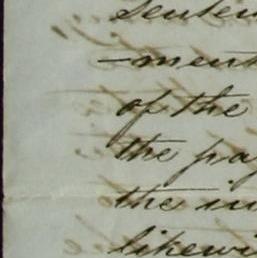 senten
-ment
of the
the pay
the in
likewi